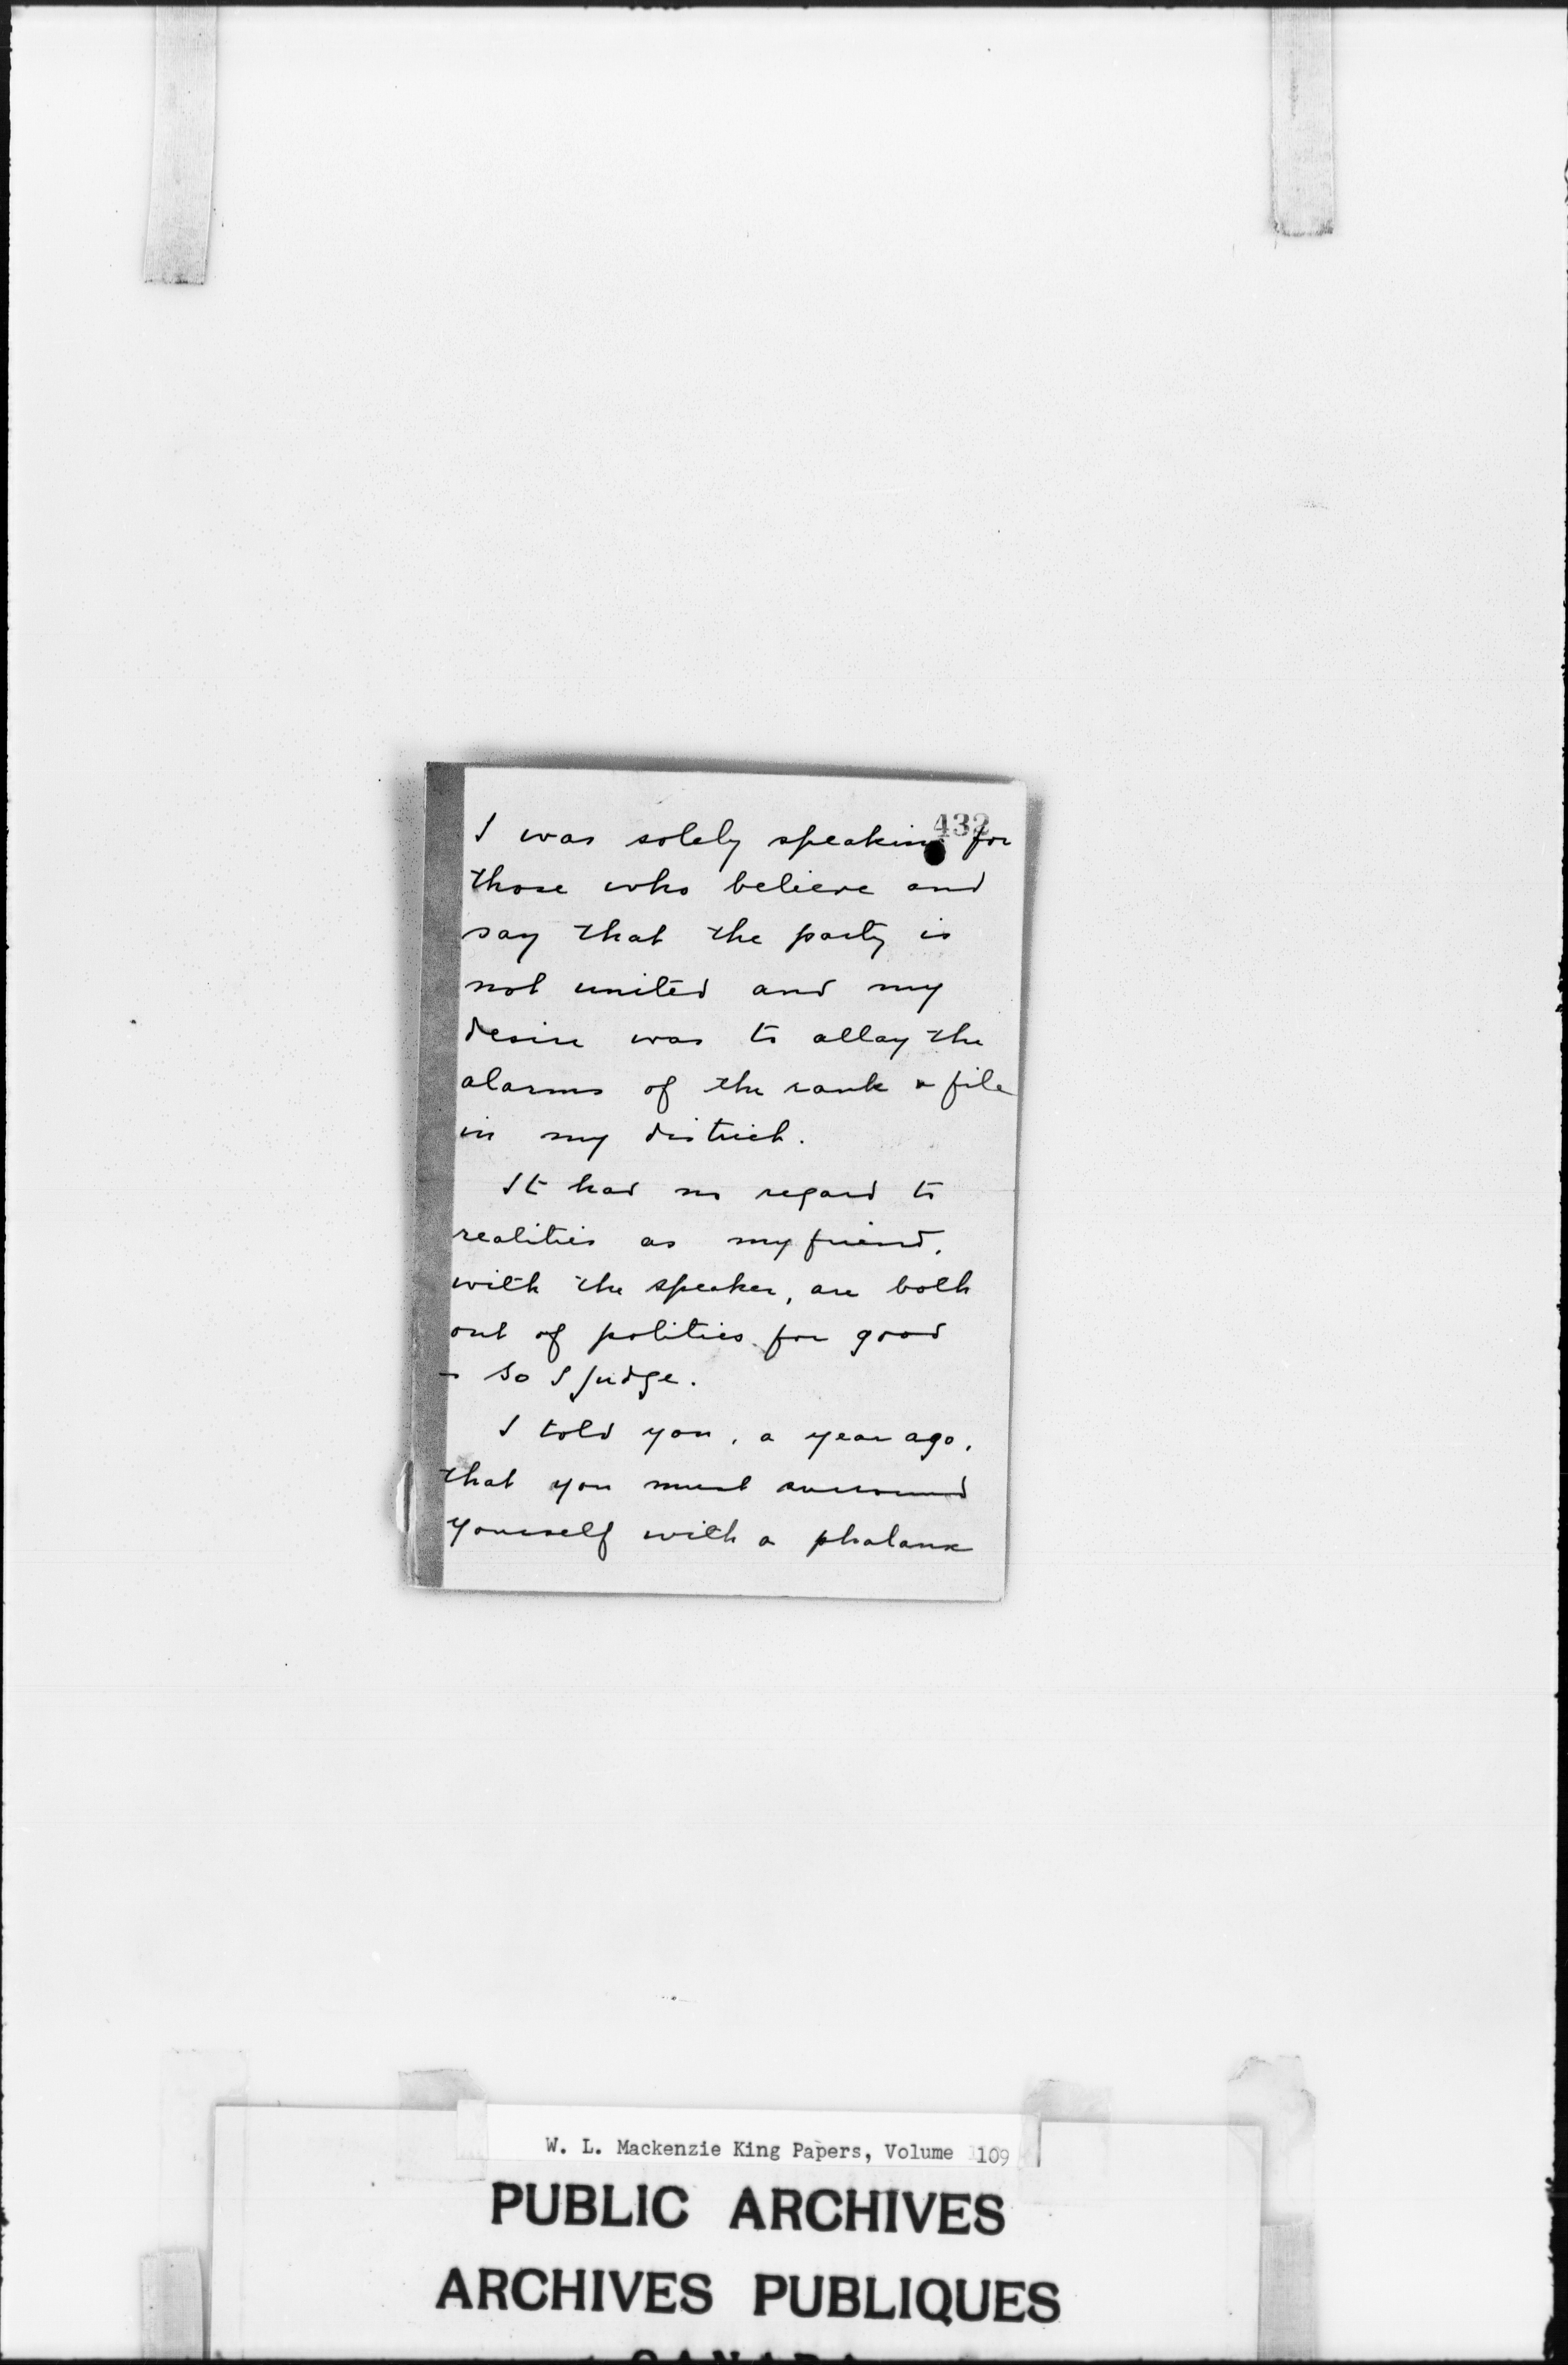 432
I was solely speaking for
those who believe and
say that the party is
not united and my
desire was to allay the
alarms of the rank & file
in my district.
It had no regard to
realities as my friend,
with the speaker, are both
out of politics for good
- so I judge.
I told you, a year ago,
that you must surround
yourself with a phalanx
W. L. Mackenzie King Papers, Volume 109
PUBLIC ARCHIVES
ARCHIVES PUBLIQUES
CANADA